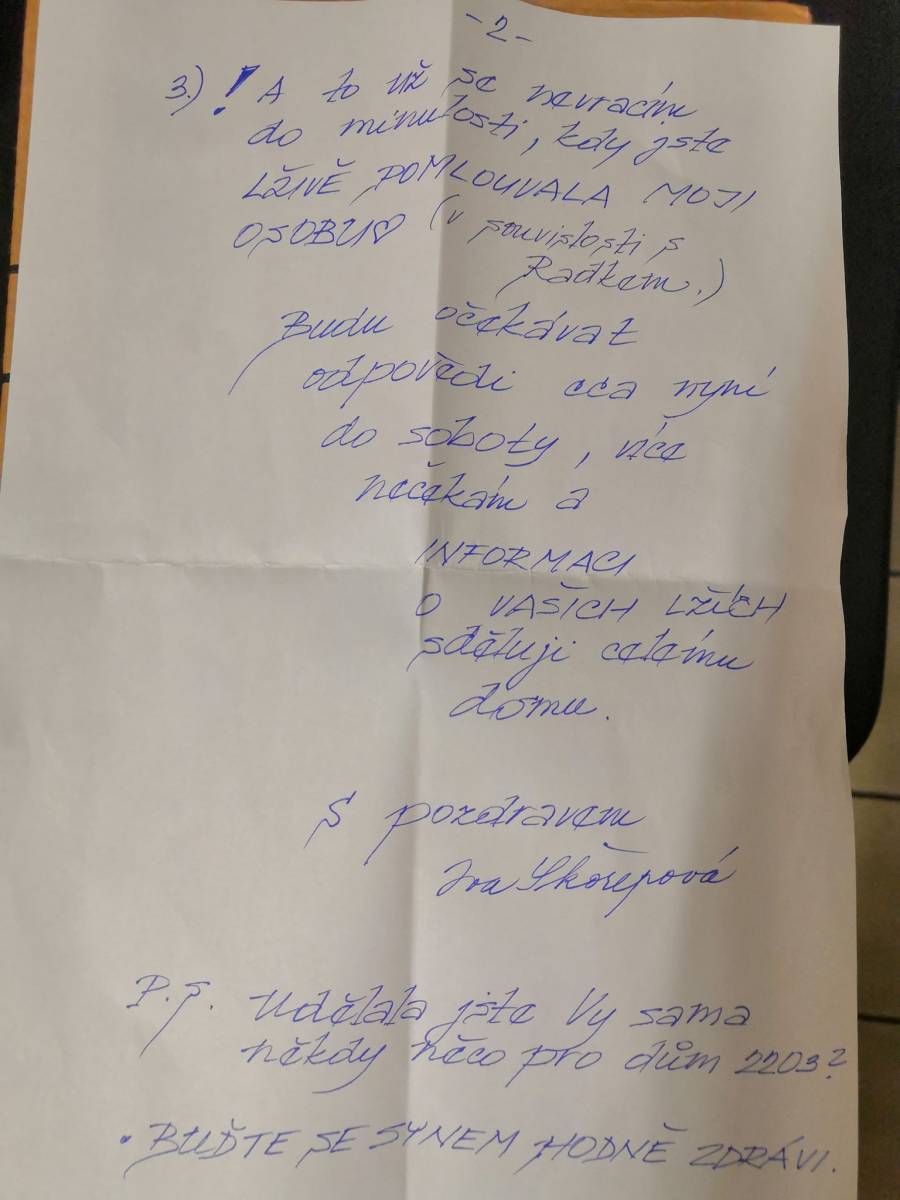 -2-
3.) ! A to už se nevracím
do minulosti, kdy jste
LŽIVĚ POMLOUVALA MOJI
OSOBU♡ (v souvislosti s
Radkem.)
Budu očekávat
odpovědi cca nyní
do soboty, více
nečekám a
INFORMACI
O VAŠICH LŽÍCH
sděluji celému
domu.
S pozdravem
Iva Skořepová
P.S. Udělala jste Vy sama
někdy něco pro dům 2203?
• BUĎTE SE SYNEM HODNĚ ZDRÁVI.